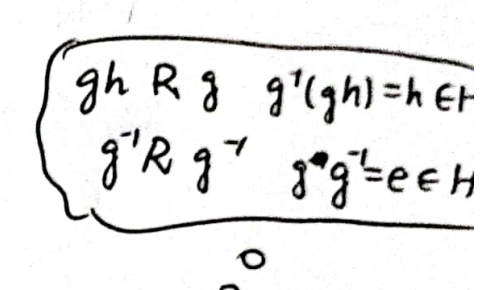 gh R g g⁻¹(gh) = h ∈ H
g⁻¹ R g⁻¹ g g⁻¹ = e ∈ H